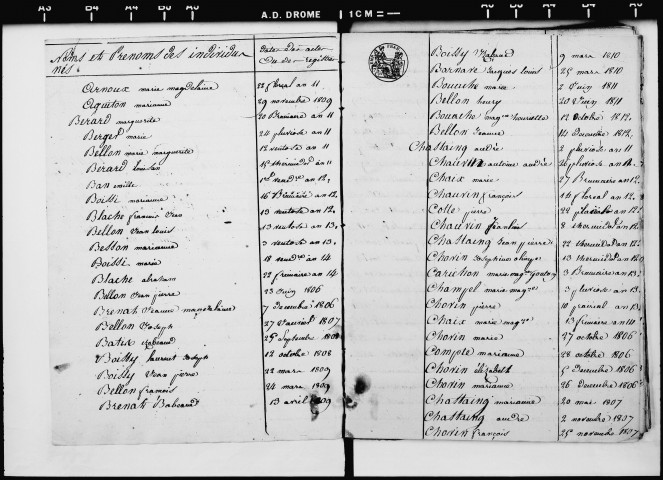 A3 B4 A4 B5 A5
A.D. DROME 1 CM
A5 B5 A4 B4 A3
Noms et Prenoms des individus
nés
Date des actes
ou de registre
Arnoux marie magdelaine 22 floreal an 11
Aquiton marianne 29 novembre 1809
Berard marguerite 20 Brumaire an 11
Berger marie 24 pluviose an 11
Bellon marie marguerite 12 ventose an 11
Berard louison thermidor an 11
Ban emille vend.re an 12
Boissi marianne 16 Brumaire an 12
Blache francois Jean 13 ventose an 12
Bellon Jean louis 13 ventose an 13
Besson marianne 3 ventose an 13
Boissi marie 18 vend.re an 14
Blache abraham 22 frimaire an 14
Billon Jean pierre 23 Juin 1806
Brenat Jeanne magdelaine 7 decembre 1806
Bellon Joseph 27 Janvier 1807
Batix Elizabeau 25 Septembre 1808
Boissy laurent Joseph 12 octobre 1808
Boissy Jean pierre 22 mars 1809
Bellon francois 24 mars 1809
Brenat Babeau 13 avril 1809
Boissy 9 mars 1810
Barnave Jacques louis 25 mars 1810
Bouache marie 2 Juin 1811
Bellon henry 20 Juin 1811
Bouache mag.ne henriette 12 octobre 1812
Bellon Jeanne 14 Decembre 1812
Chastaing andré 2 pluviose an 11
Chauvin antoine andré 26 pluviose an 11
Chaix marie 27 Brumaire an 12
Chauvin françois 14 floreal an 12
Colle pierre 22 an 12
Chauvin 8 thermidor an 12
Chastaing Jean pierre 22 thermidor an 12
Chovin 13 thermidor an 12
Carichon marie mag.ne 3 Brumaire an 13
Champel marie mag.ne 3 pluviose an 13
Chovin pierre 10 prairial an 13
Chaix marie mag.ne 13 frimaire an 14
Chovin marie 27 octobre 1806
Compte marianne 28 octobre 1806
Chovin elizabeth 5 Decembre 1806
Chovin marianne 26 decembre 1806
Chastaing marianne 20 mai 1807
Chastaing andré 2 novembre 1807
Chovin françois 25 novembre 1807